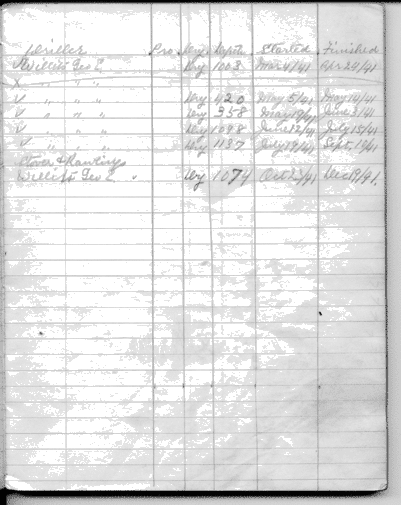 Driller Pro. Dry Depth Started Finished
✓ Willits Geo E Dry 1003 Mar 4/41 Apr 24/41
x " " "
✓ " " " Dry 420 May 5/41 May 14/41
✓ " " " Dry 358 May 19/41 June 3/41
✓ " " " Dry 1098 June 12/41 July 15/41
✓ " " " Dry 1137 July 19/41 Sept. 19/41
Stover & Rankin
Willits Geo E " Dry 1074 Oct 2/41 Dec 19/41.